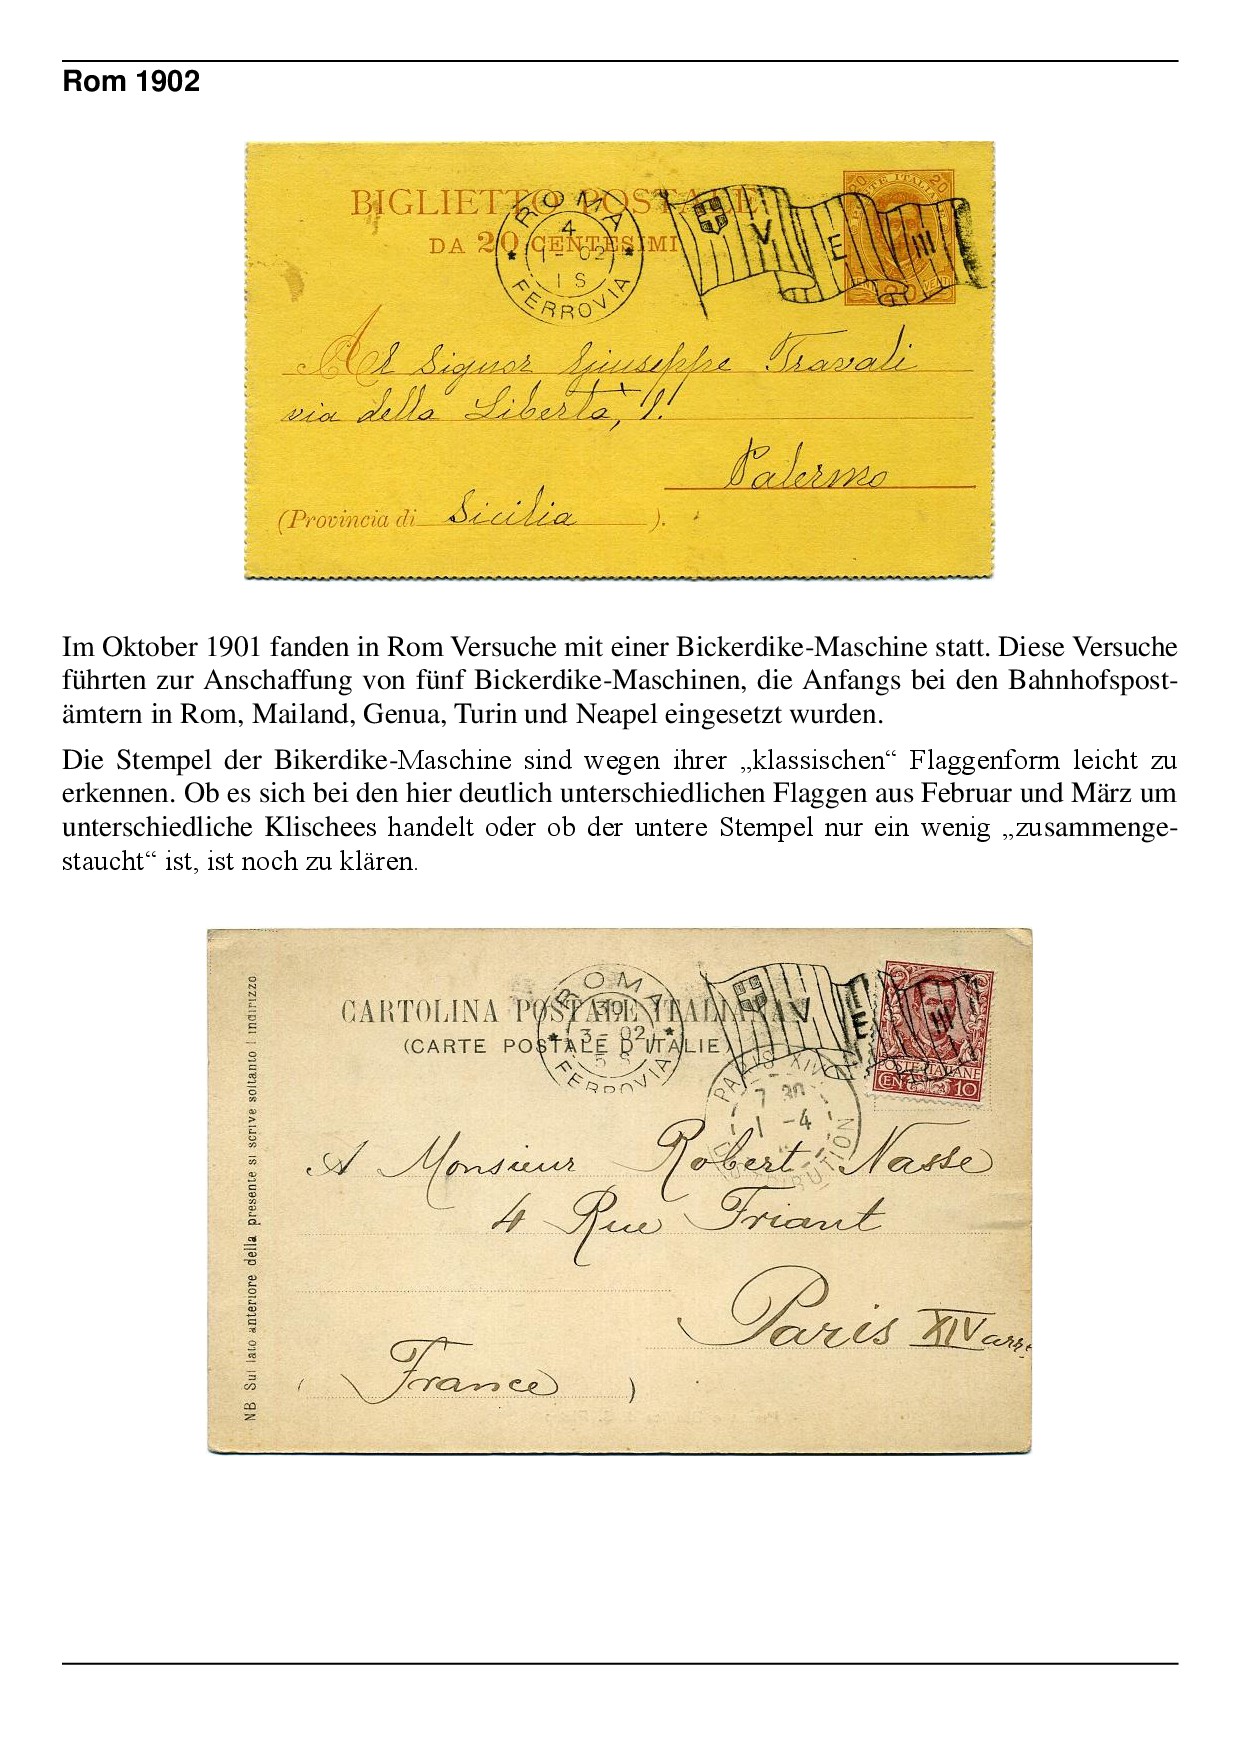 Rom 1902
BIGLIETTO POSTALE
DA 20 CENTESIMI
ROMA
4
1-02
1 S
FERROVIA
V E III
POSTE ITALIANE
20 20
VENTI 20 VENTI
Al Signor Giuseppe Travali
via della Libertà, 1.
Palermo
(Provincia di Sicilia ).
Im Oktober 1901 fanden in Rom Versuche mit einer Bickerdike-Maschine statt. Diese Versuche
führten zur Anschaffung von fünf Bickerdike-Maschinen, die Anfangs bei den Bahnhofspost-
ämtern in Rom, Mailand, Genua, Turin und Neapel eingesetzt wurden.
Die Stempel der Bikerdike-Maschine sind wegen ihrer „klassischen“ Flaggenform leicht zu
erkennen. Ob es sich bei den hier deutlich unterschiedlichen Flaggen aus Februar und März um
unterschiedliche Klischees handelt oder ob der untere Stempel nur ein wenig „zusammenge-
staucht“ ist, ist noch zu klären.
CARTOLINA POSTALE ITALIANA
(CARTE POSTALE D'ITALIE)
ROMA
30
3-02
5 S
FERROVIA
V E III
POSTE ITALIANE
CEN 10
PARIS XIV
7 30
1 -4
DISTRIBUTION
NB Sul lato anteriore della presente si scrive soltanto l indirizzo
A Monsieur Robert Nasse
4 Rue Friant
Paris XIV arr.
( France )